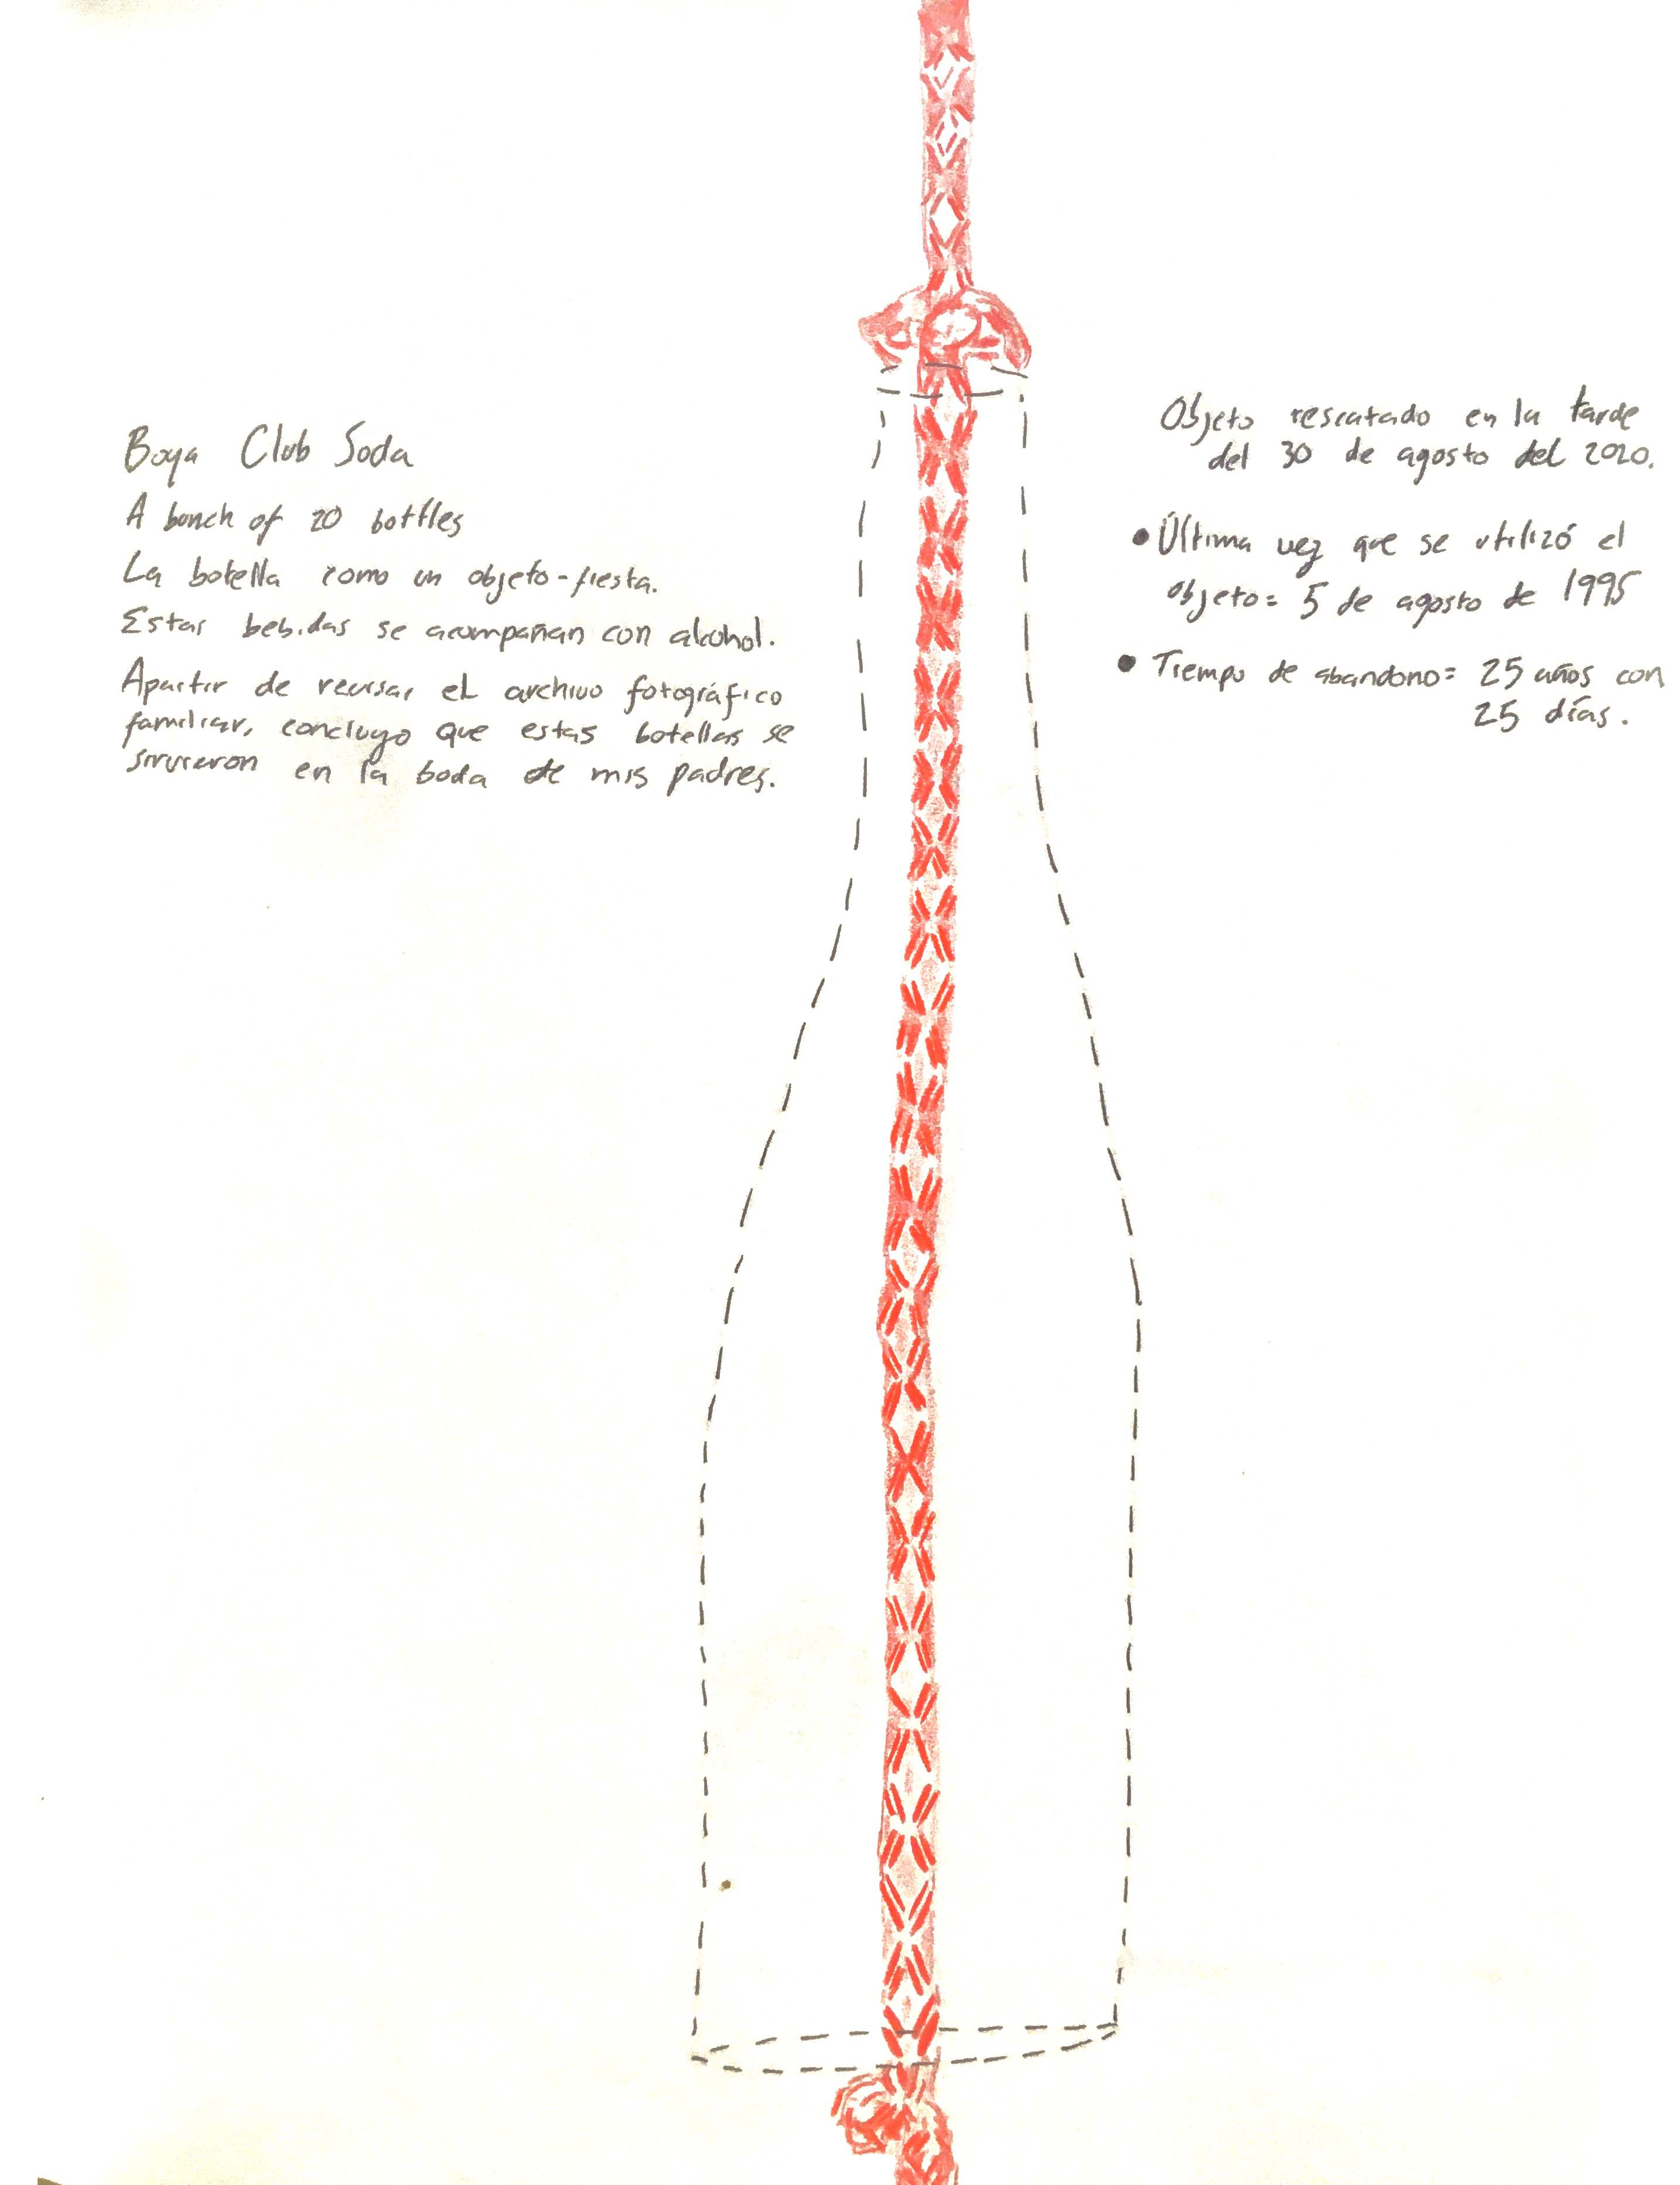 Boya Club Soda
A bunch of 20 bottles
La botella como un objeto-fiesta.
Estas bebidas se acompañan con alcohol.
Apartir de revisar el archivo fotográfico
familiar, concluyo que estas botellas se
sirvieron en la boda de mis padres.
Objeto rescatado en la tarde
del 30 de agosto del 2020.
• Última vez que se utilizó el
objeto = 5 de agosto de 1995
• Tiempo de abandono = 25 años con
25 días.